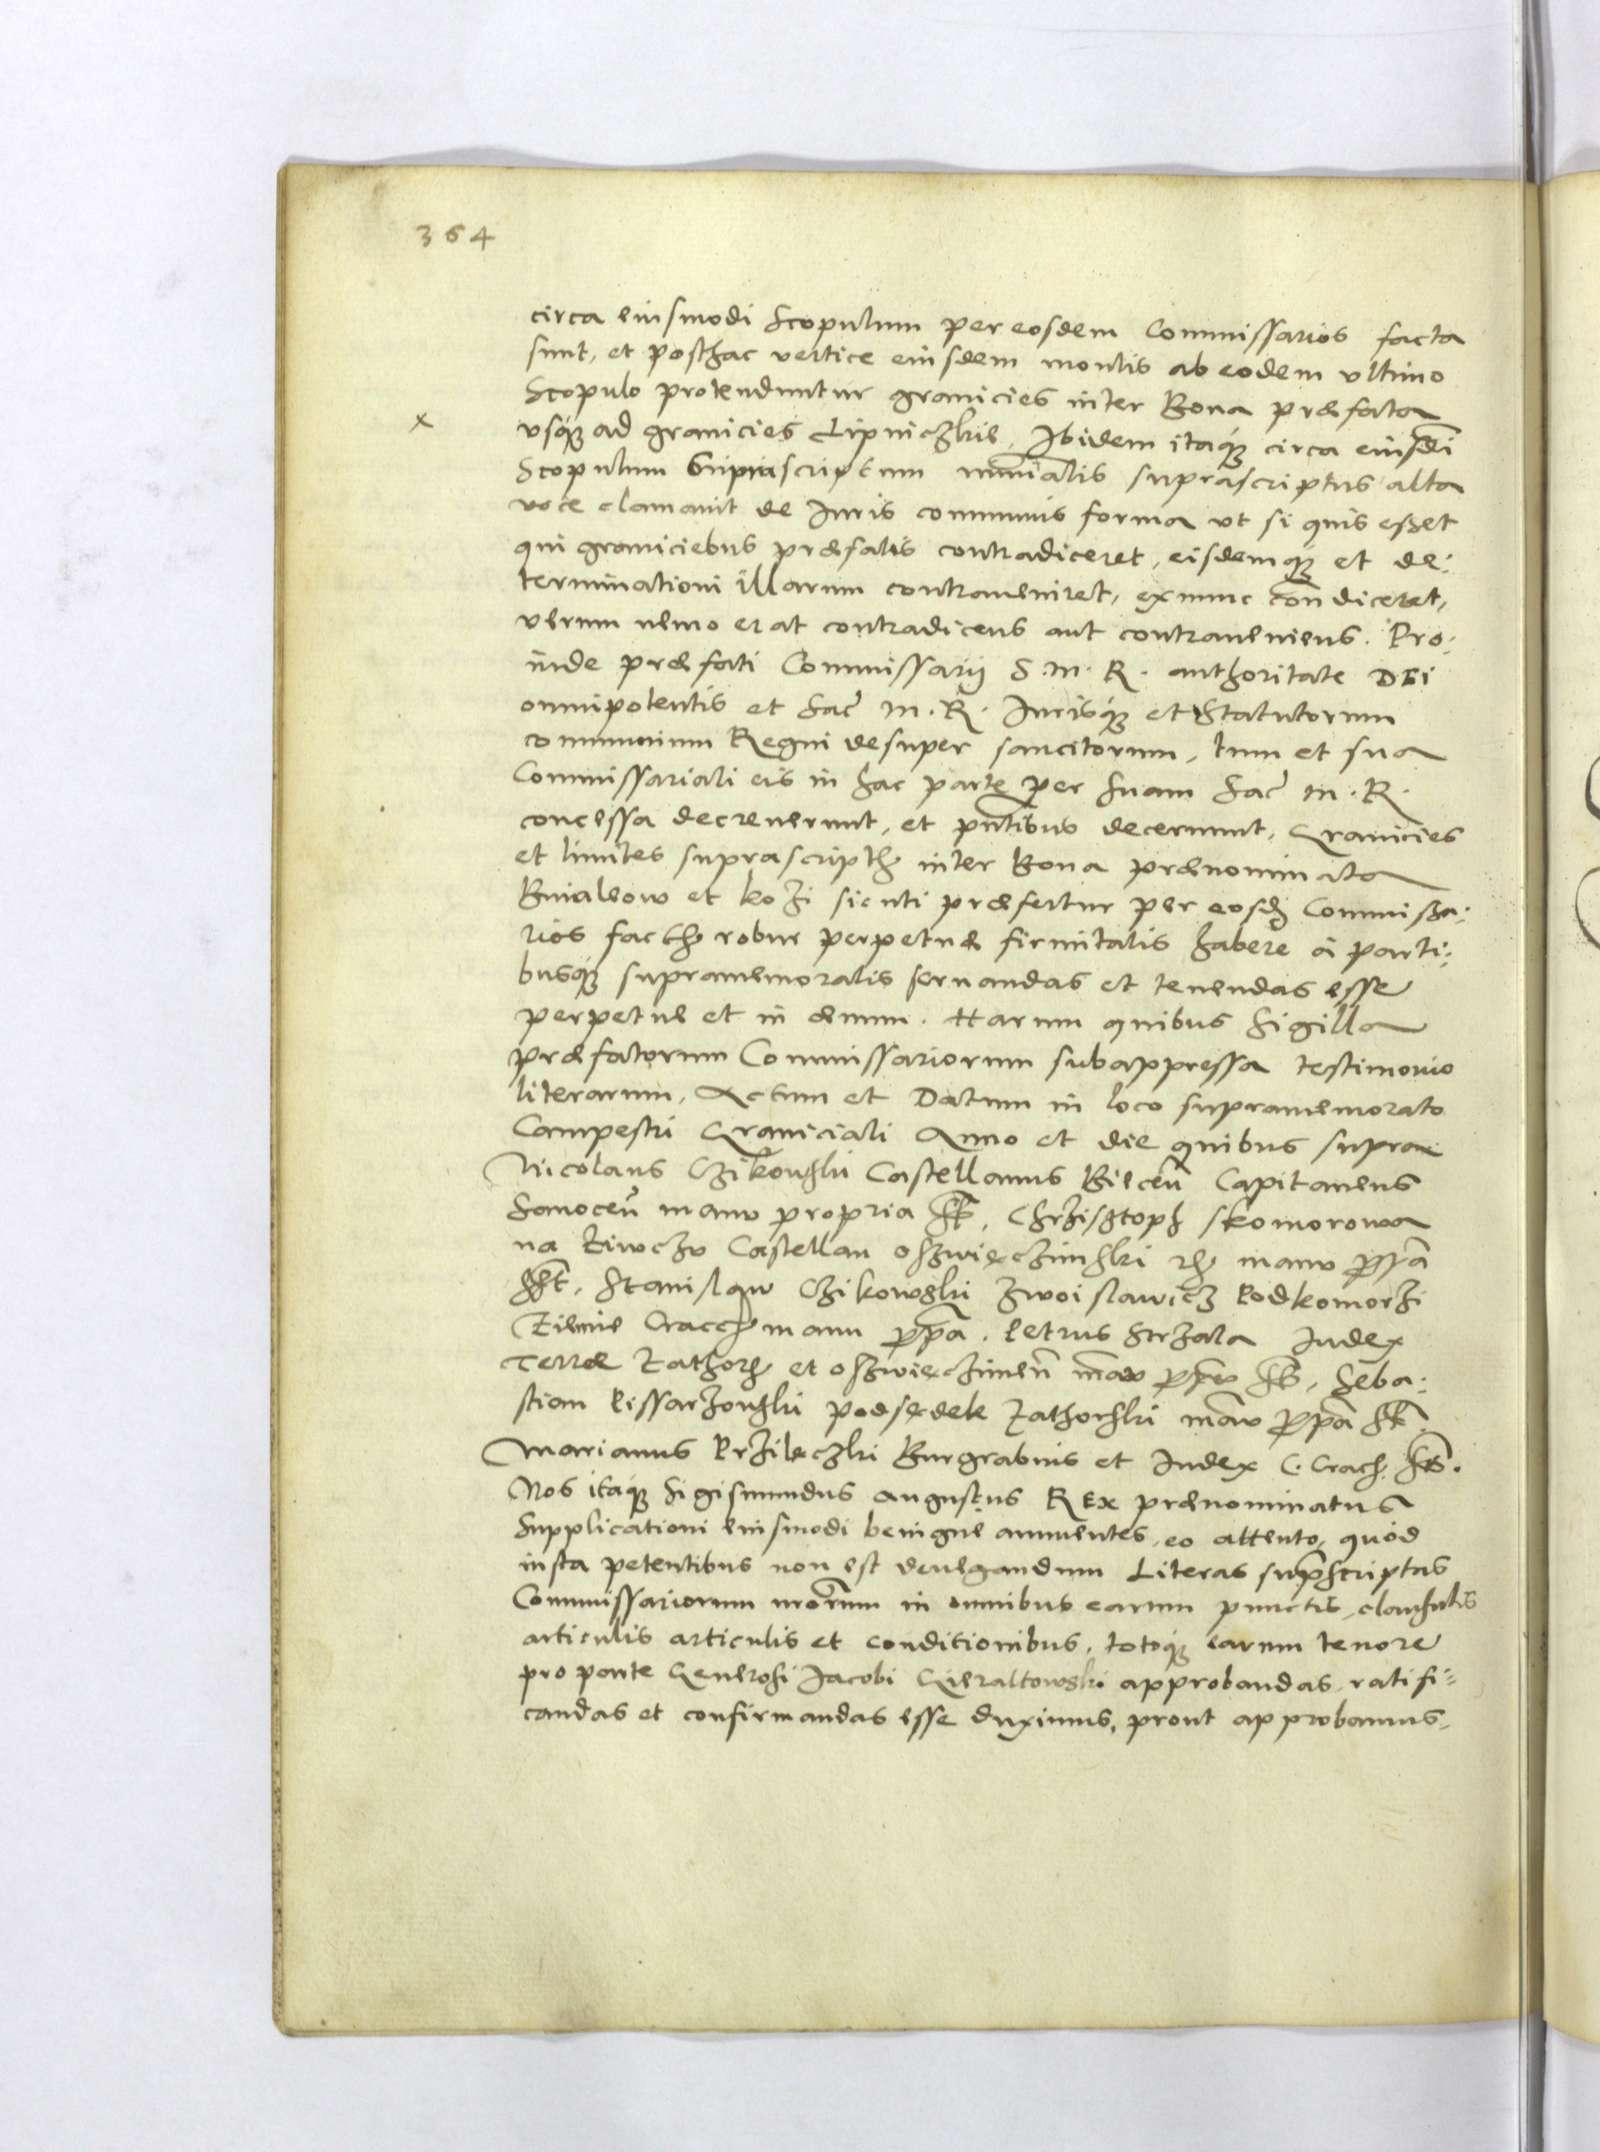 364
circa eiusmodi scopulum per eosdem Commissarios facta
sunt, et posthac vertice eiusdem montis ab eodem ultimo
Scopulo protenduntur granicies inter Bona præfata
x
vsq₃ ad granicies Lipniczkie. Ibidem itaq₃ circa eiusdi
Scopulum supra scriptum ministerialis suprascriptus alta
voce clamavit de Iuris communis forma vt si quis esset
qui graniciebus præfatis contradiceret, eisdemq₃ et de:
terminationi illarum contraveniret, ex nunc condiceret,
verum nemo erat contradicens aut contraveniens. Pro:
inde præfati Commissarij S. M. R. authoritate DEI
omnipotentis et Sac̃ M. R. Iurisq₃ et Statutorum
communium Regni desuper sancitorum, tum et sua
Commissariali eis in hac parte per suam Sac̃ M. R.
concessa decreverunt, et pñtibus decernunt, Granicies
et limites suprascriptas inter Bona prænominata
Bvialow et kozi sicuti præfertur per eosd. Commissa:
rios factas robur perpetuæ firmitatis habere à parti:
busq₃ supramemoratis servandas et tenendas esse
perpetue et in ævum. Harum quibus Sigilla
præfatorum Commissariorum subappressa testimonio
literarum. Actum et Datum in loco supramemorato
Campestri Graniciali Anno et die quibus supra
Nicolaus Czikowski Castellanus Biecen̄ Capitaneus
Sanocen̄ manu propria sst. Chrzisztoph skomorowa
na Ziwczu Castellan oszwieczimski rc. manu ppria
sst. Stanislaw Czikowski Zwoislawicz Podkomorzi
Ziemie Cracc. manu ppa. Petrus Strzala Iudex
Terræ Zathor. et oszwieczimen̄ manu ppa sst, Seba:
stian Pissarzowski podsedek Zathorski manu ppa sst
Marianus Przileczki Burgrabius et Iudex C. Crac. sst.
Nos itaq₃ Sigismundus Augustus REX prænominatus
Supplicationi eiusmodi benigne annuentes, eo attento, quòd
iusta petentibus non est denegandum Literas suprascriptas
Commissariorum nrorum in omnibus earum punctis, clausulis
articulis articulis et conditionibus, totoq₃ earum tenore
pro parte Generosi Iacobi Gieraltowski approbandas, ratifi:
candas et confirmandas esse duximus, prout approbamus,